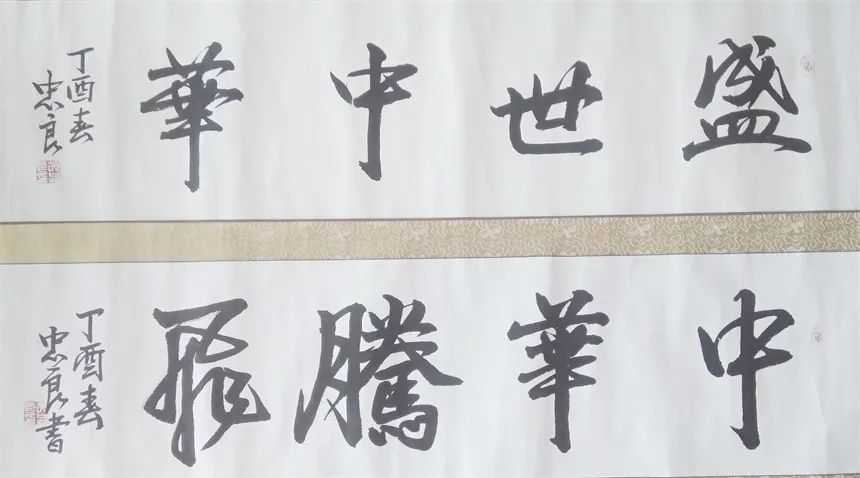 盛世中華
丁酉春
忠良
中華騰飛
丁酉春
忠良書